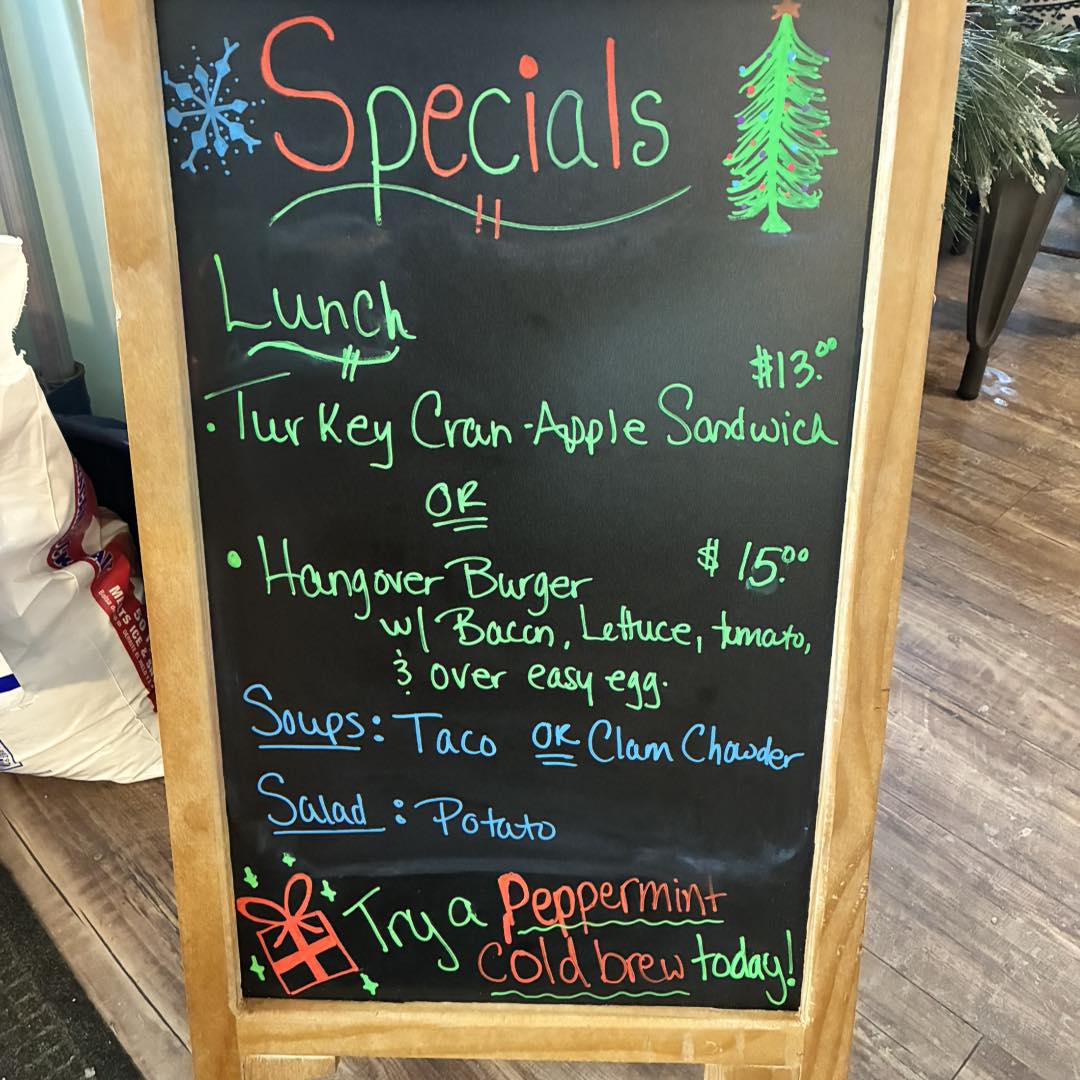 Specials
Lunch
$13.00
• Turkey Cran-Apple Sandwich
OR
• Hangover Burger $15.00
w/ Bacon, Lettuce, tomato,
& over easy egg.
Soups: Taco OR Clam Chowder
Salad: Potato
Try a Peppermint
cold brew today!